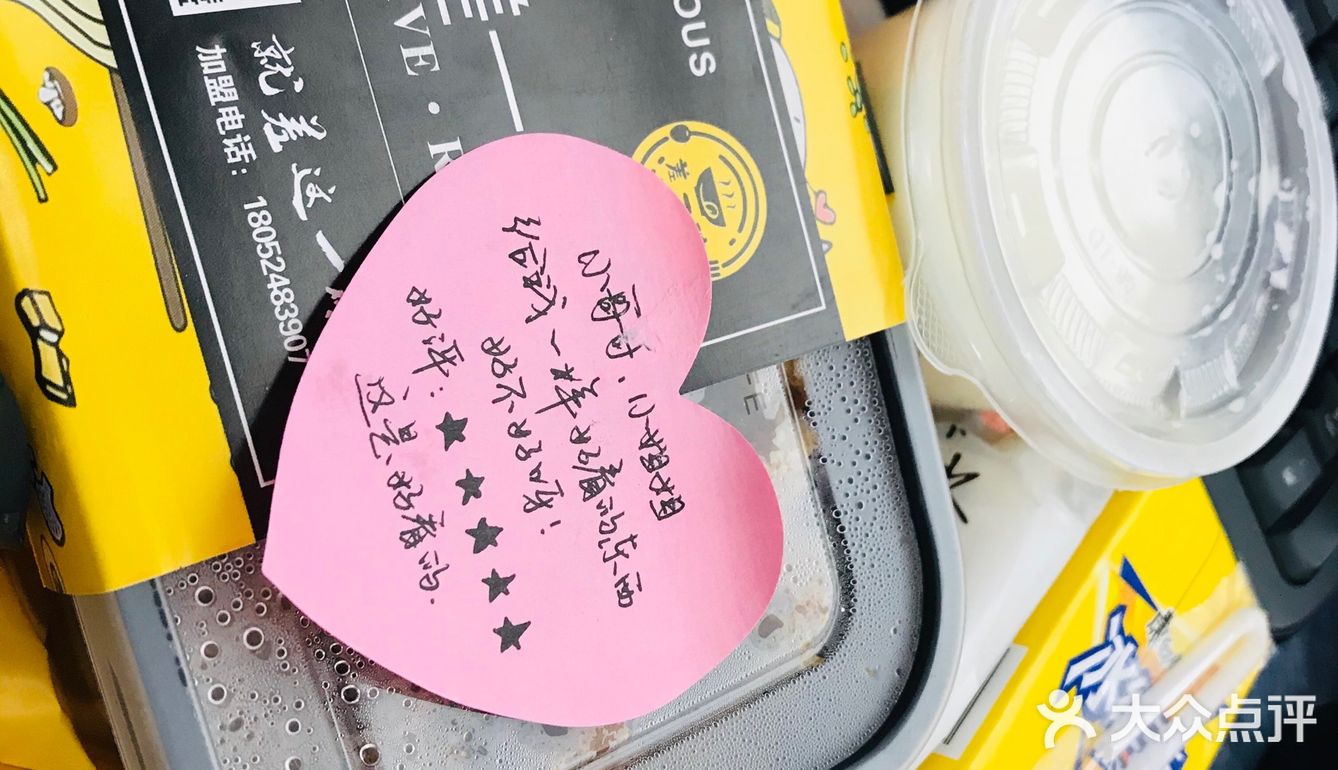 OUS
VE·R
就差这一
加盟电话：18052483907
小姐姐
给我一样好看的东西
好不好呀！
好评：★★★★★
这是好看的.
大众点评